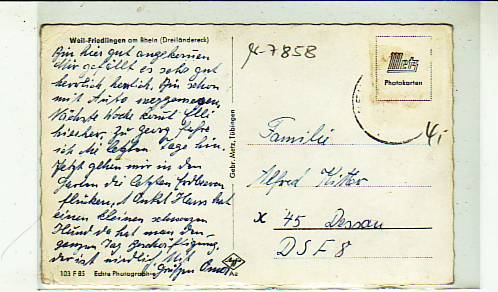 Weil-Friedlingen am Rhein (Dreiländereck)
Bin hier gut angekommen
Mir gefällt es sehr gut
herrlich, herrlich. Bin schon
mit Auto
Nächste Woche kommt Elli
hierher. Zu Georg fahre
ich die letzten Tage hin.
Jetzt gehen wir in den
Garten die letzten Erdbeeren
pflücken. Onkel Hans hat
einen kleinen schwarzen
Hund da hat man den
ganzen Tag Beschäftigung,
der ist niedlich. Mit
Grüßen
103 F 85 Echte Photographie
Gebr. Metz, Tübingen
M-7858
Metz
Photokarten
4,-
Familie
Alfred Ritter
x 45 Dessau
DSF 8